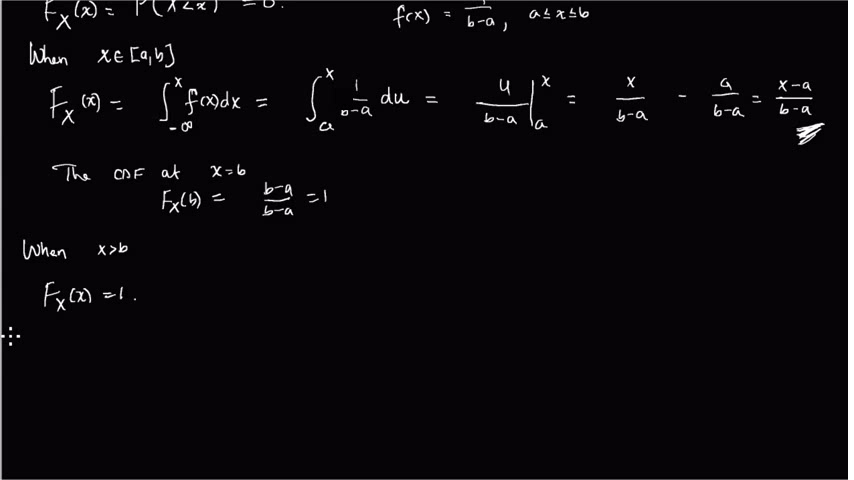 F_X(x) = P(X<x) = 0. f(x) = 1/(b-a), a≤x≤b
When x∈[a,b]
F_X(x) = ∫_{-∞}^{x} f(x)dx = ∫_{a}^{x} 1/(b-a) du = u/(b-a) |_{a}^{x} = x/(b-a) - a/(b-a) = (x-a)/(b-a)
The CDF at x=b
F_X(b) = (b-a)/(b-a) = 1
When x>b
F_X(x) = 1.